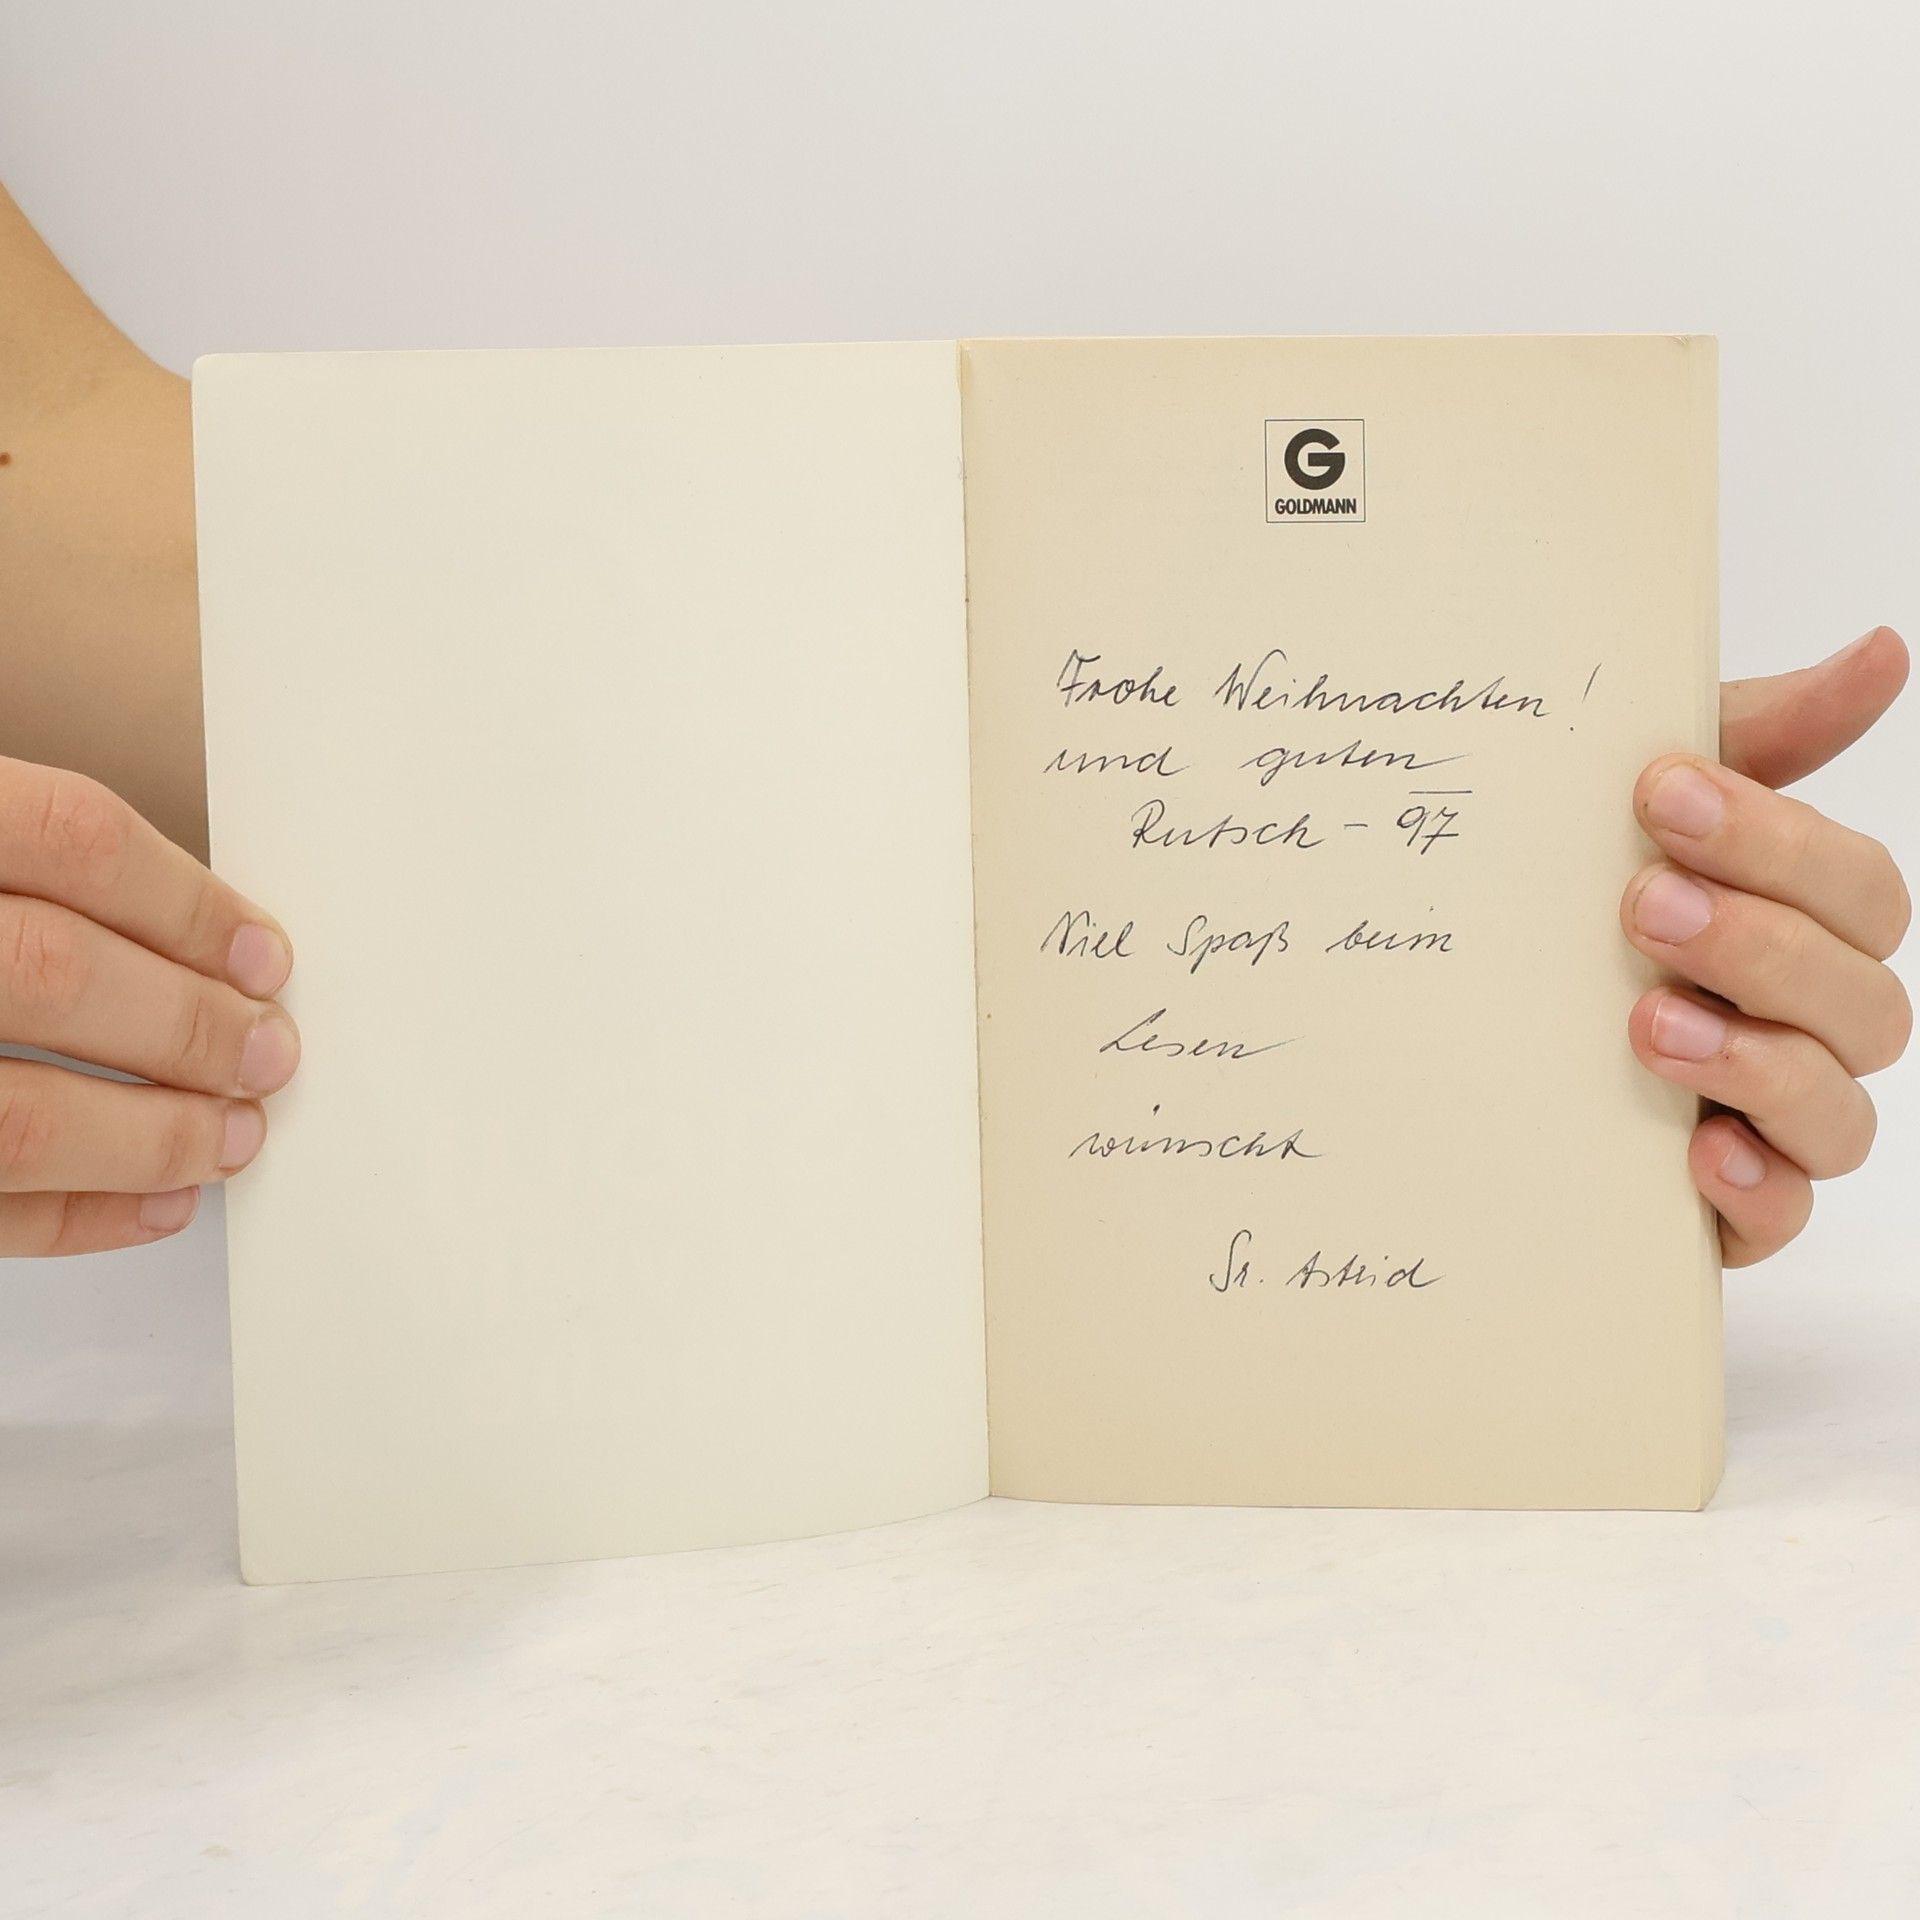 G
GOLDMANN
Frohe Weihnachten!
und guten
Rutsch - 97
Viel Spaß beim
Lesen
wünscht
Sr. Astrid